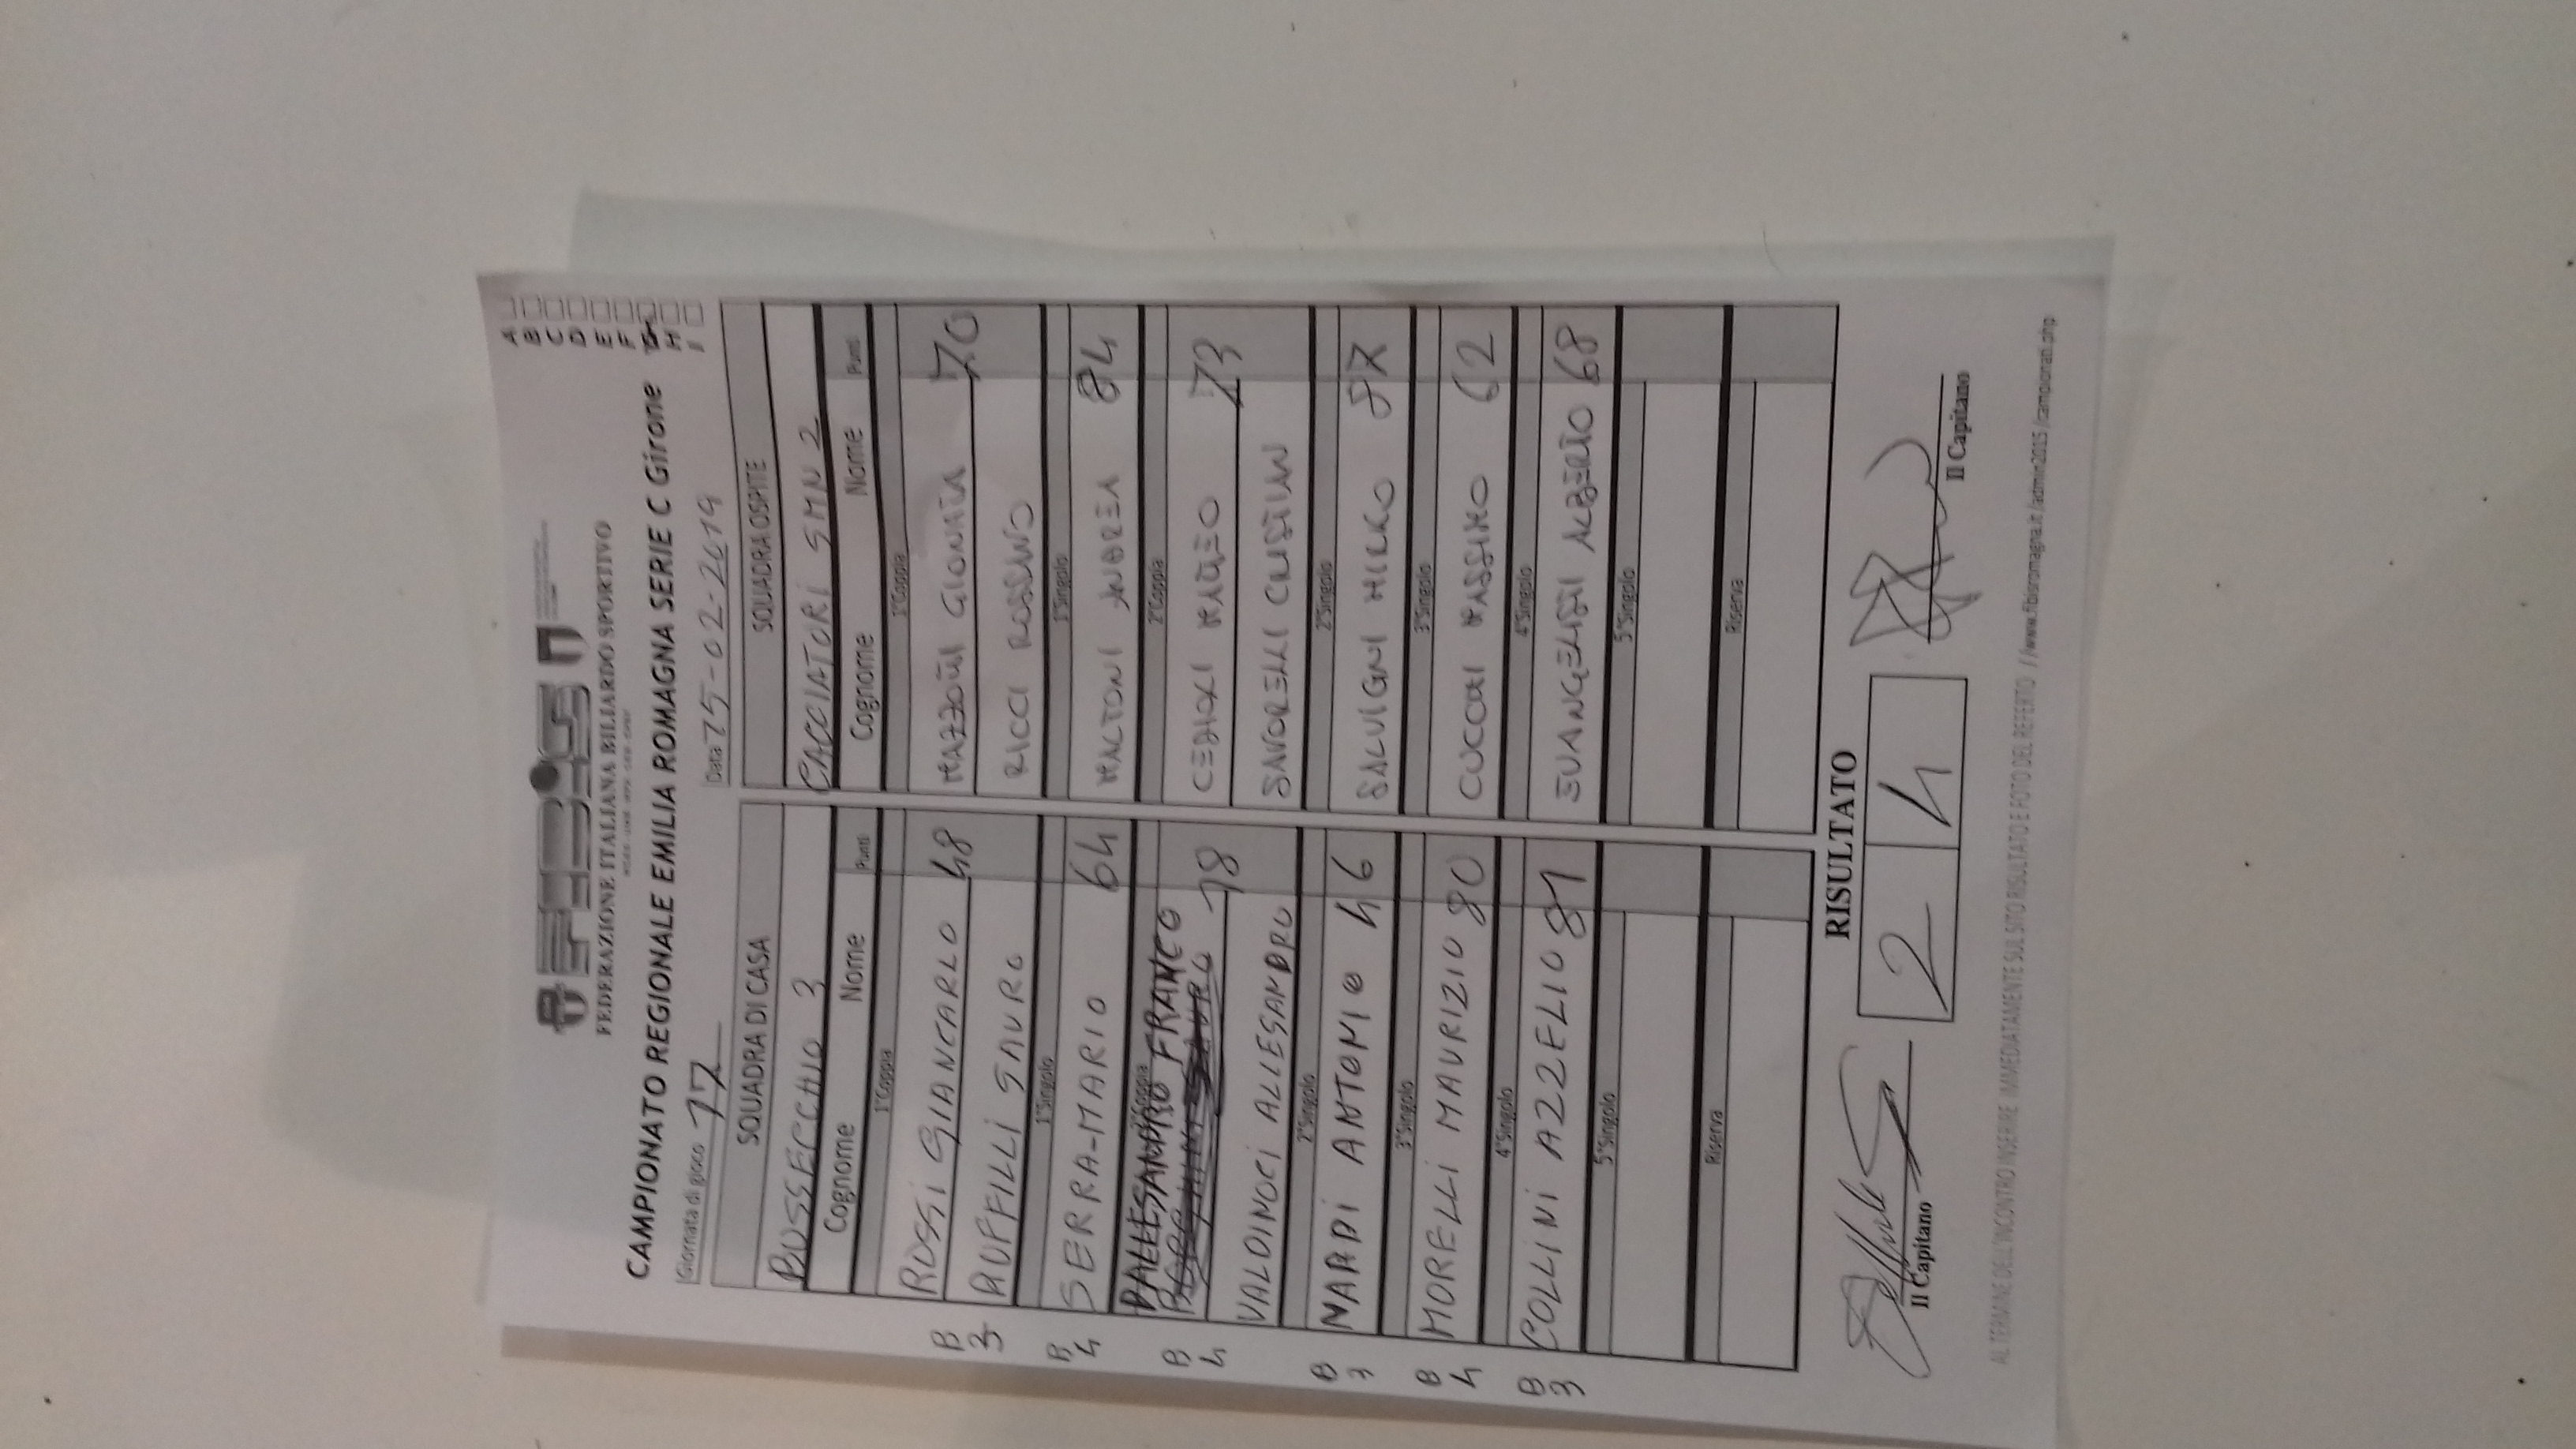 FEDERAZIONE ITALIANA BILIARDO SPORTIVO
CAMPIONATO REGIONALE EMILIA ROMAGNA SERIE C Girone
A
B
C
D
E
F
H
I
Giornata di gioco 17
Data 25-02-2019
SQUADRA DI CASA SQUADRA OSPITE
BUSSECCHIO 3 CACCIATORI SMN 2
Cognome Nome Punti Cognome Nome Punti
1°Coppia 1°Coppia
ROSSI GIANCARLO 48 MAZZOTTI GIONATA 70
RUFFILLI SAURO RICCI ROSSANO
1°Singolo 1°Singolo
SERRA-MARIO 64 MALTONI ANDREA 84
2°Coppia 2°Coppia
DALLESANDRO FRANCO 78 CEDIOLI MATTEO 73
VALDINOCI ALLESANDRO SAVORELLI CRISTIAN
2°Singolo 2°Singolo
NARDI ANTONIO 46 SALVIGNI MIRKO 87
3°Singolo 3°Singolo
MORELLI MAURIZIO 80 CUCCHI MASSIMO 62
4°Singolo 4°Singolo
COLLINI AZZELIO 81 EVANGELISTI ALBERTO 68
5°Singolo 5°Singolo
Riserva Riserva
B
3
B
4
B
4
B
3
B
4
B
3
RISULTATO
2 4
Il Capitano Il Capitano
AL TERMINE DELL'INCONTRO INSERIRE IMMEDIATAMENTE SUL SITO RISULTATO E FOTO DEL REFERTO //www.fibisromagna.it/admin2015/campionati.php